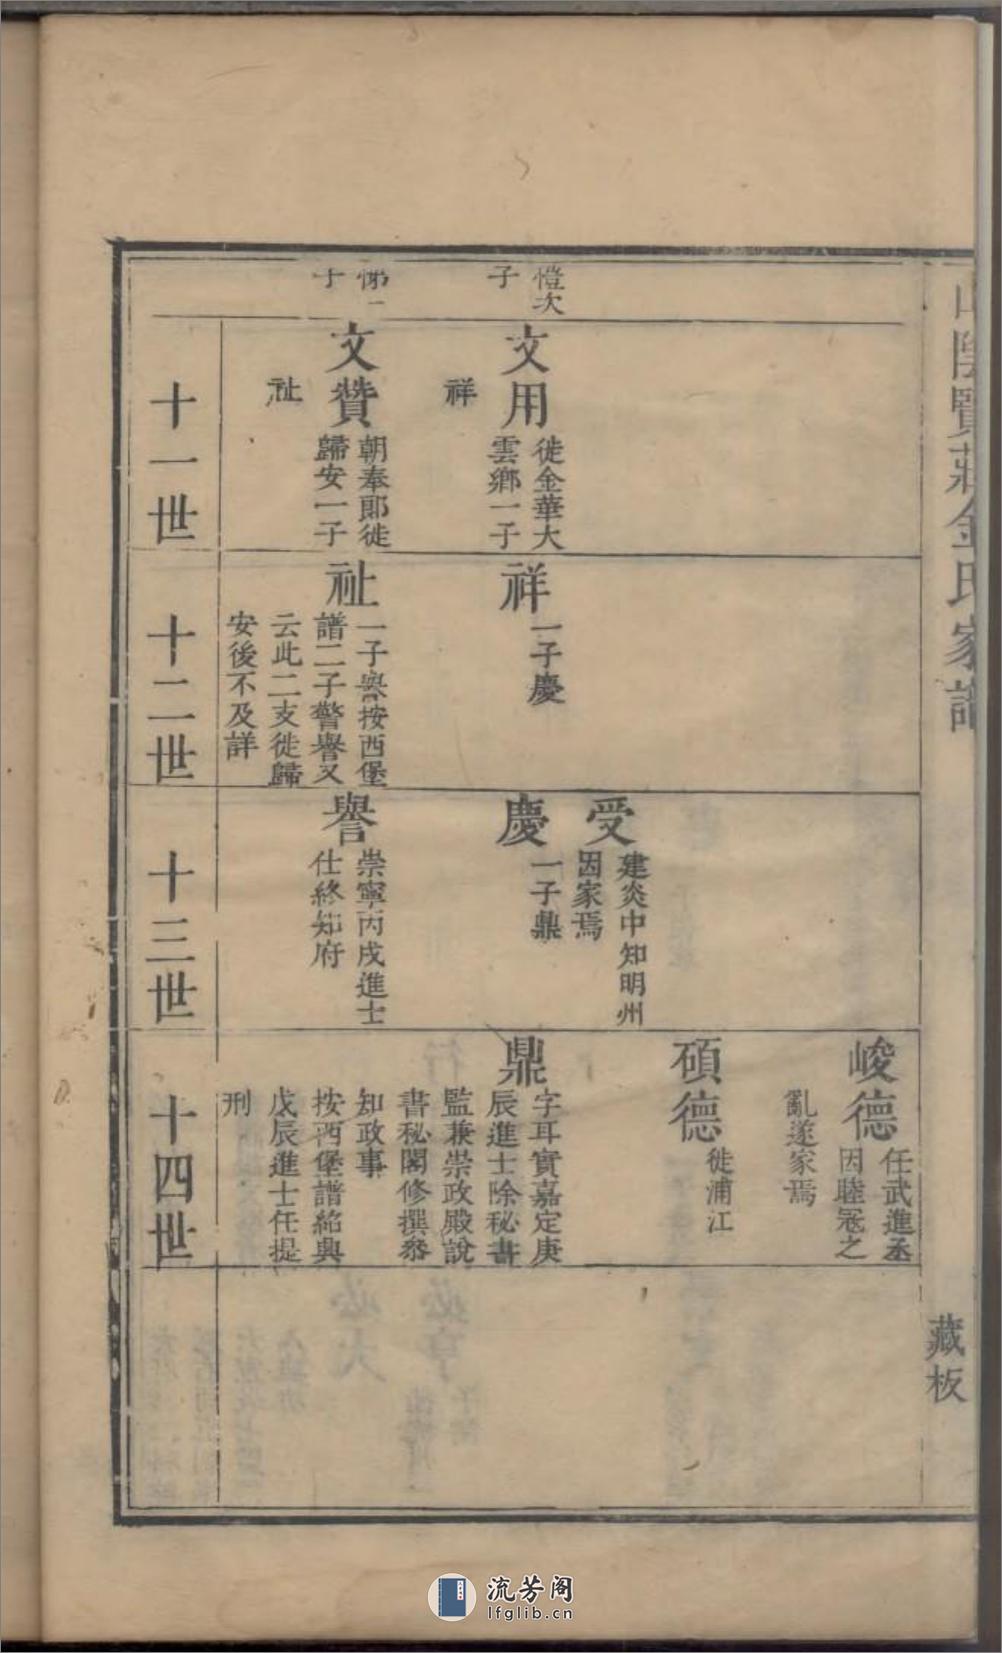 山陰賢莊金氏家譜
藏板
愷次
子
悌一
子
文用
徙金華大
雲鄉一子
祥
文贊
朝奉郞徙
歸安一子
祉
十一世
祥
一子慶
祉
一子譽按西堡
譜二子警譽又
云此二支徙歸
安後不及詳
十二世
受
建炎中知明州
因家焉
慶
一子鼎
譽
崇寧丙戌進士
仕終知府
十三世
峻德
任武進丞
因睦寇之
亂遂家焉
碩德
徙浦江
鼎
字耳實嘉定庚
辰進士除秘書
監兼崇政殿說
書秘閣修撰參
知政事
按西堡譜紹興
戊辰進士任提
刑
十四世
流芳阁
lfglib.cn